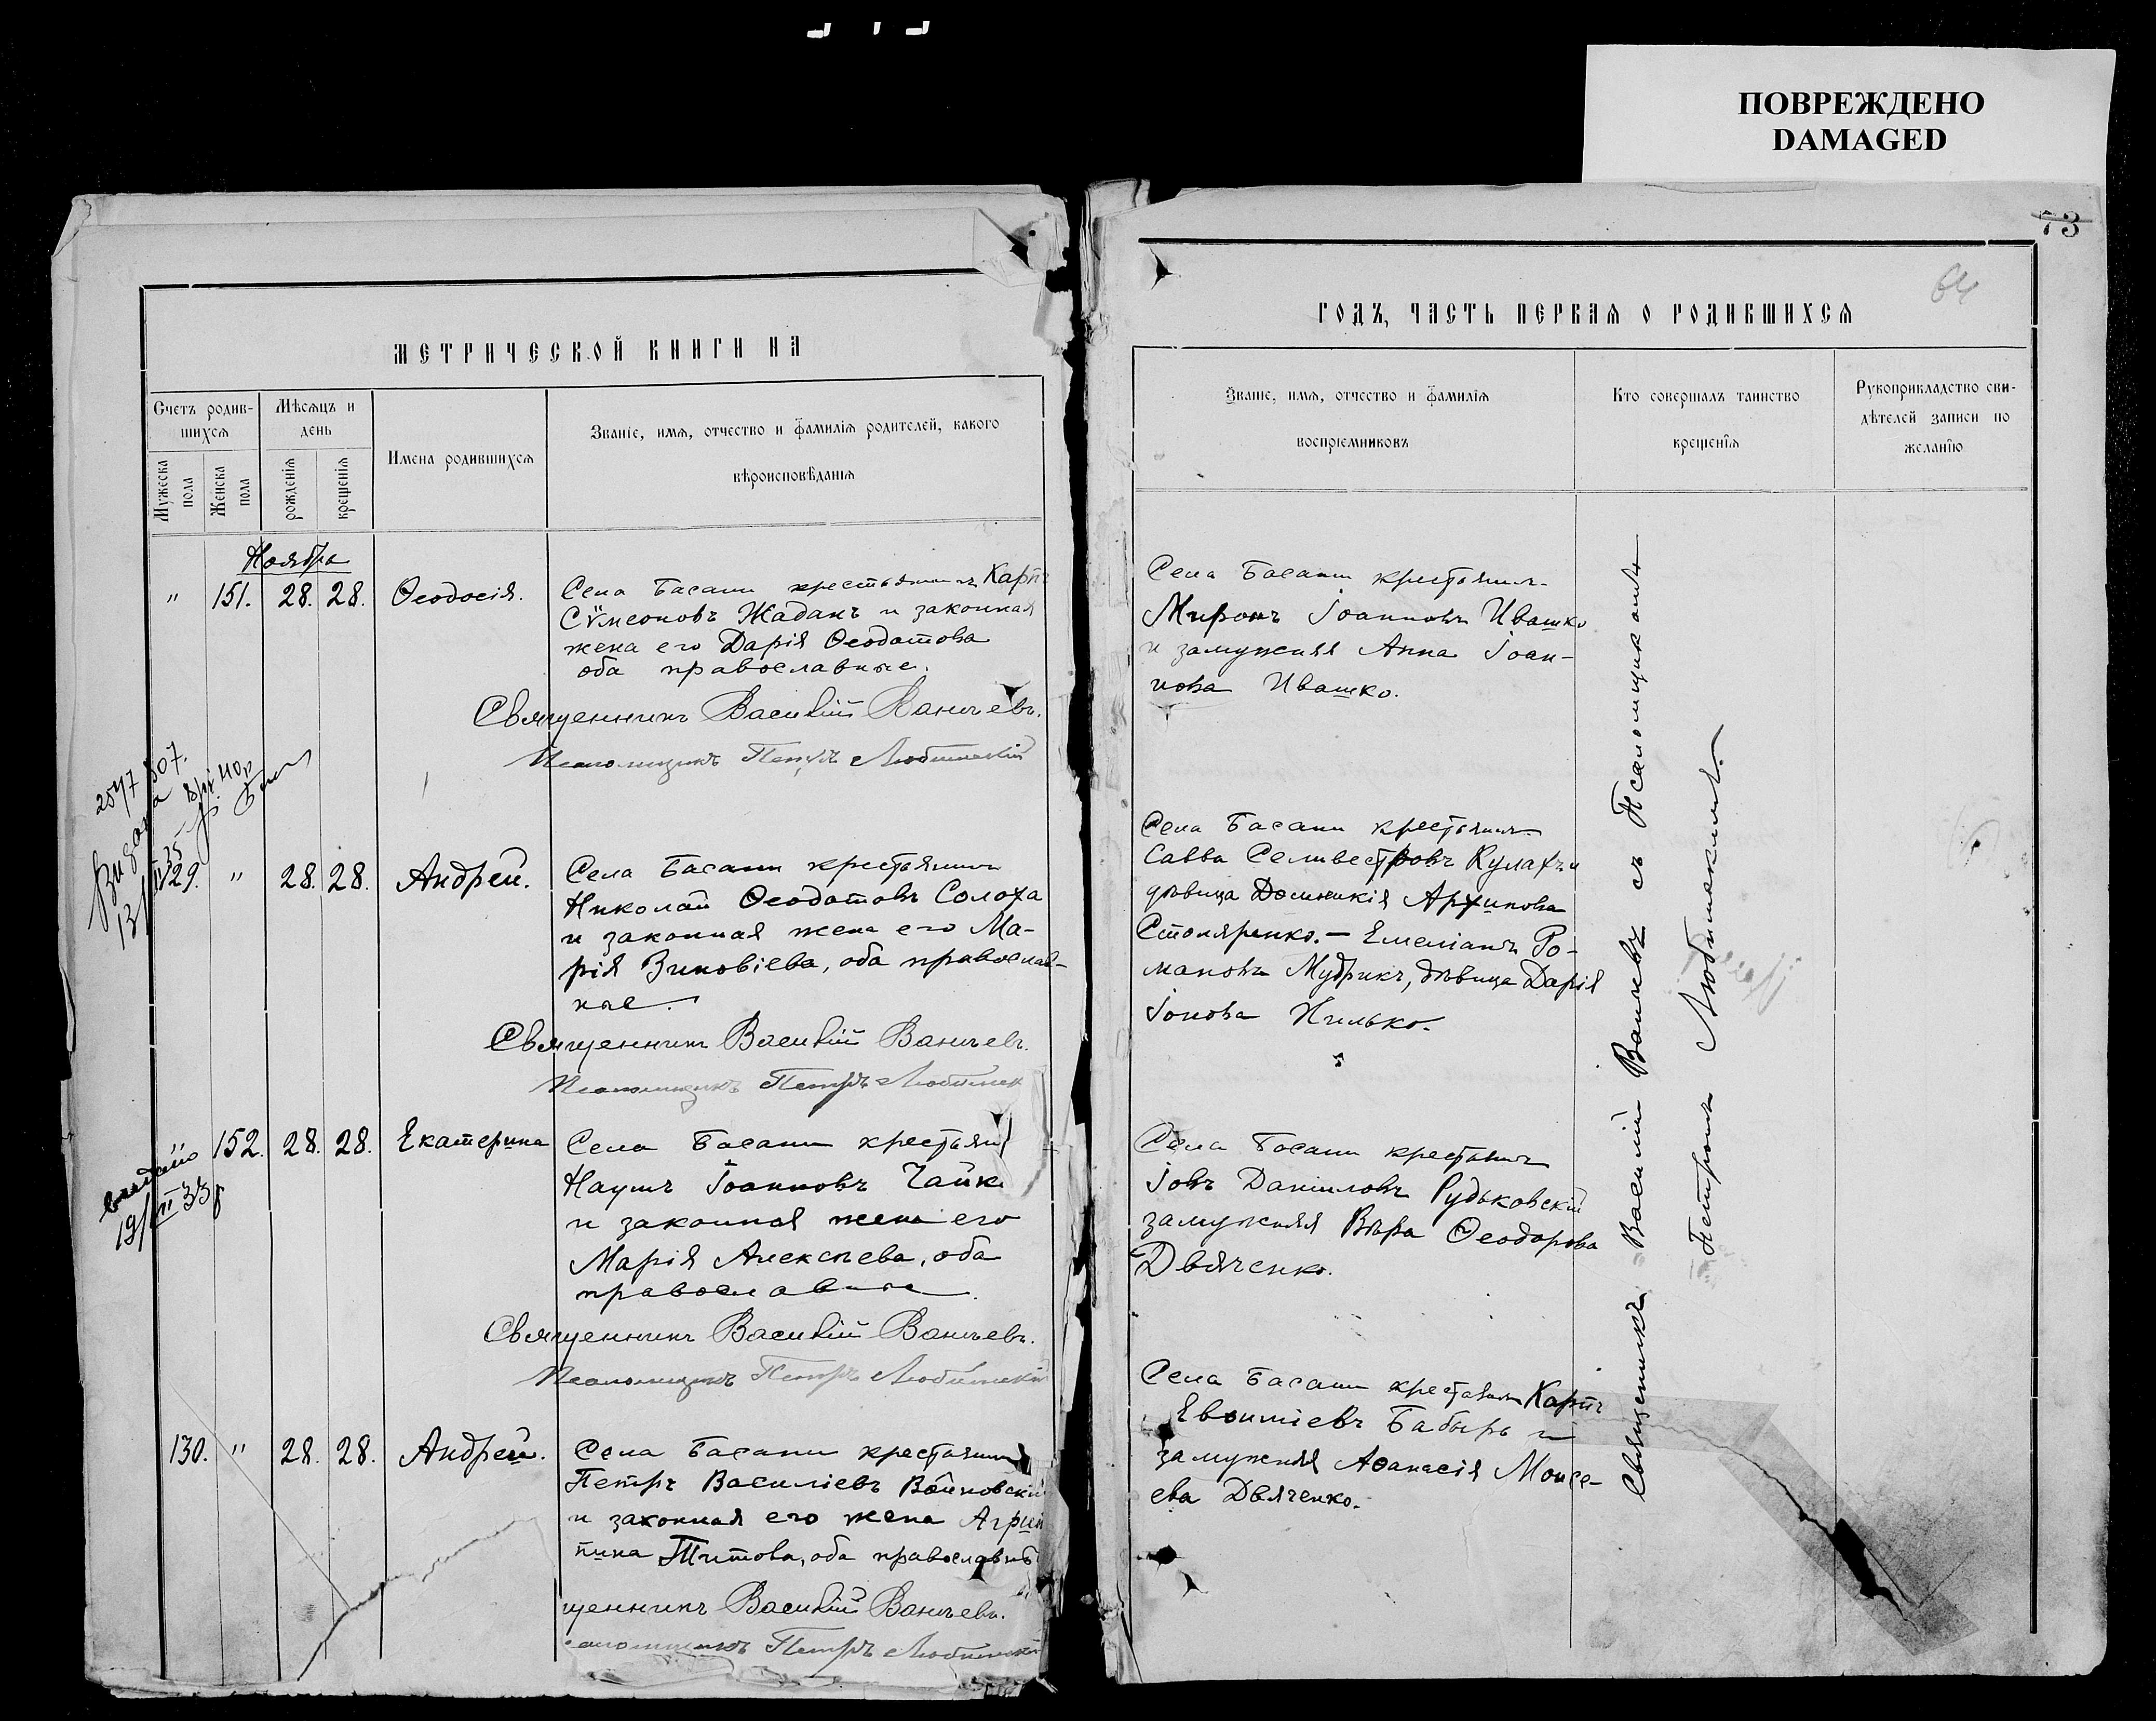 ПОВРЕЖДЕНО
DAMAGED
73
64
МЕТРИЧЕСКОЙ КНИГИ НА
Счетъ родив-
шихся
Мужеска
пола
Женска
пола
Мѣсяцъ и
день
рожденія
крещенія
Имена родившихся
Званіе, имя, отчество и фамилія родителей, какого
вѣроисповѣданія
Ноября
" 151. 28. 28. Ѳеодосія.
Села Басани крестьянинъ Карпъ
Сѵмеоновъ Жаданъ и законная
жена его Дарія Ѳеодотова
оба православные.
Священникъ Василій Ваничевъ.
Псаломщикъ Петръ Любинскій
2547 507.
129. " 28. 28. Андрей.
Села Басани крестьянинъ
Николай Ѳеодотовъ Солоха
и законная жена его Ма-
рія Зиновіева, оба православ-
ные.
Священникъ Василій Ваничевъ.
Псаломщикъ Петръ Любинск
" 152. 28. 28. Екатерина
Села Басани крестьян
Наумъ Іоанновъ Чайк
и законная жена его
Марія Алексѣева, оба
православные.
Священникъ Василій Ваничевъ.
Псаломщикъ Петръ Любинскій
130. " 28. 28. Андрей.
Села Басани крестьянинъ
Петръ Василіевъ Войновскій
и законная его жена Агрип
пина Титова, оба православн
щенникъ Василій Ваничевъ.
саломщикъ Петръ Любинскій
ГОДЪ, ЧАСТЬ ПЕРВАЯ О РОДИВШИХСЯ
Званіе, имя, отчество и фамилія
воспріемниковъ
Кто совершалъ таинство
крещенія
Рукоприкладство сви-
дѣтелей записи по
желанію
Села Басани крестьянин-
Миронъ Іоанновъ Ивашко
и замужняя Анна Іоан-
нова Ивашко.
Села Басани крестьянин
Савва Селивестровъ Кулахъ и
дѣвица Домникія Архипова
Столяренко. - Емеліанъ Ро-
мановъ Мудрикъ, дѣвица Дарія
Іонова Нилько.
Села Басани крестьянинъ
Іовъ Даніиловъ Рудьковскій
замужняя Вѣра Ѳеодорова
Двяченко.
Села Басани крестьянин Карпъ
Евѳиміевъ Бабырь и
замужняя Аѳанасія Моисе-
ева Двяченко.
Священникъ Василій Ваничевъ съ Псаломщикомъ
Петромъ Любинскимъ.